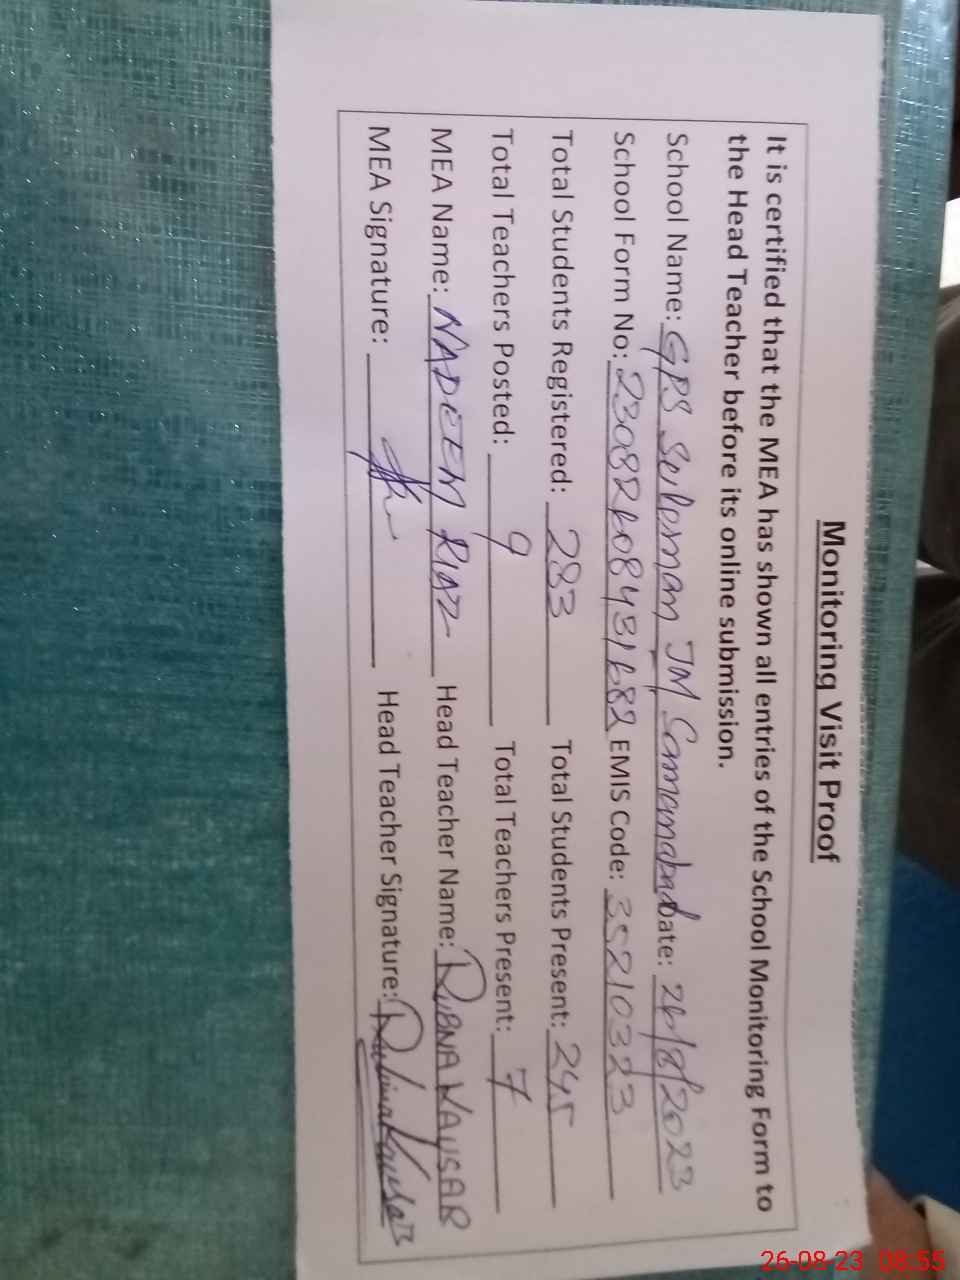 Monitoring Visit Proof
It is certified that the MEA has shown all entries of the School Monitoring Form to
the Head Teacher before its online submission.
School Name: GPS Suleman JM Samanabad Date: 26/8/2023
School Form No: 23082608431682 EMIS Code: 35210323
Total Students Registered: 283 Total Students Present: 245
Total Teachers Posted: 9 Total Teachers Present: 7
MEA Name: NADEEM RIAZ Head Teacher Name: RUBNA KAUSAR
MEA Signature: Head Teacher Signature: Rubina Kousar
26-08-23 08:55